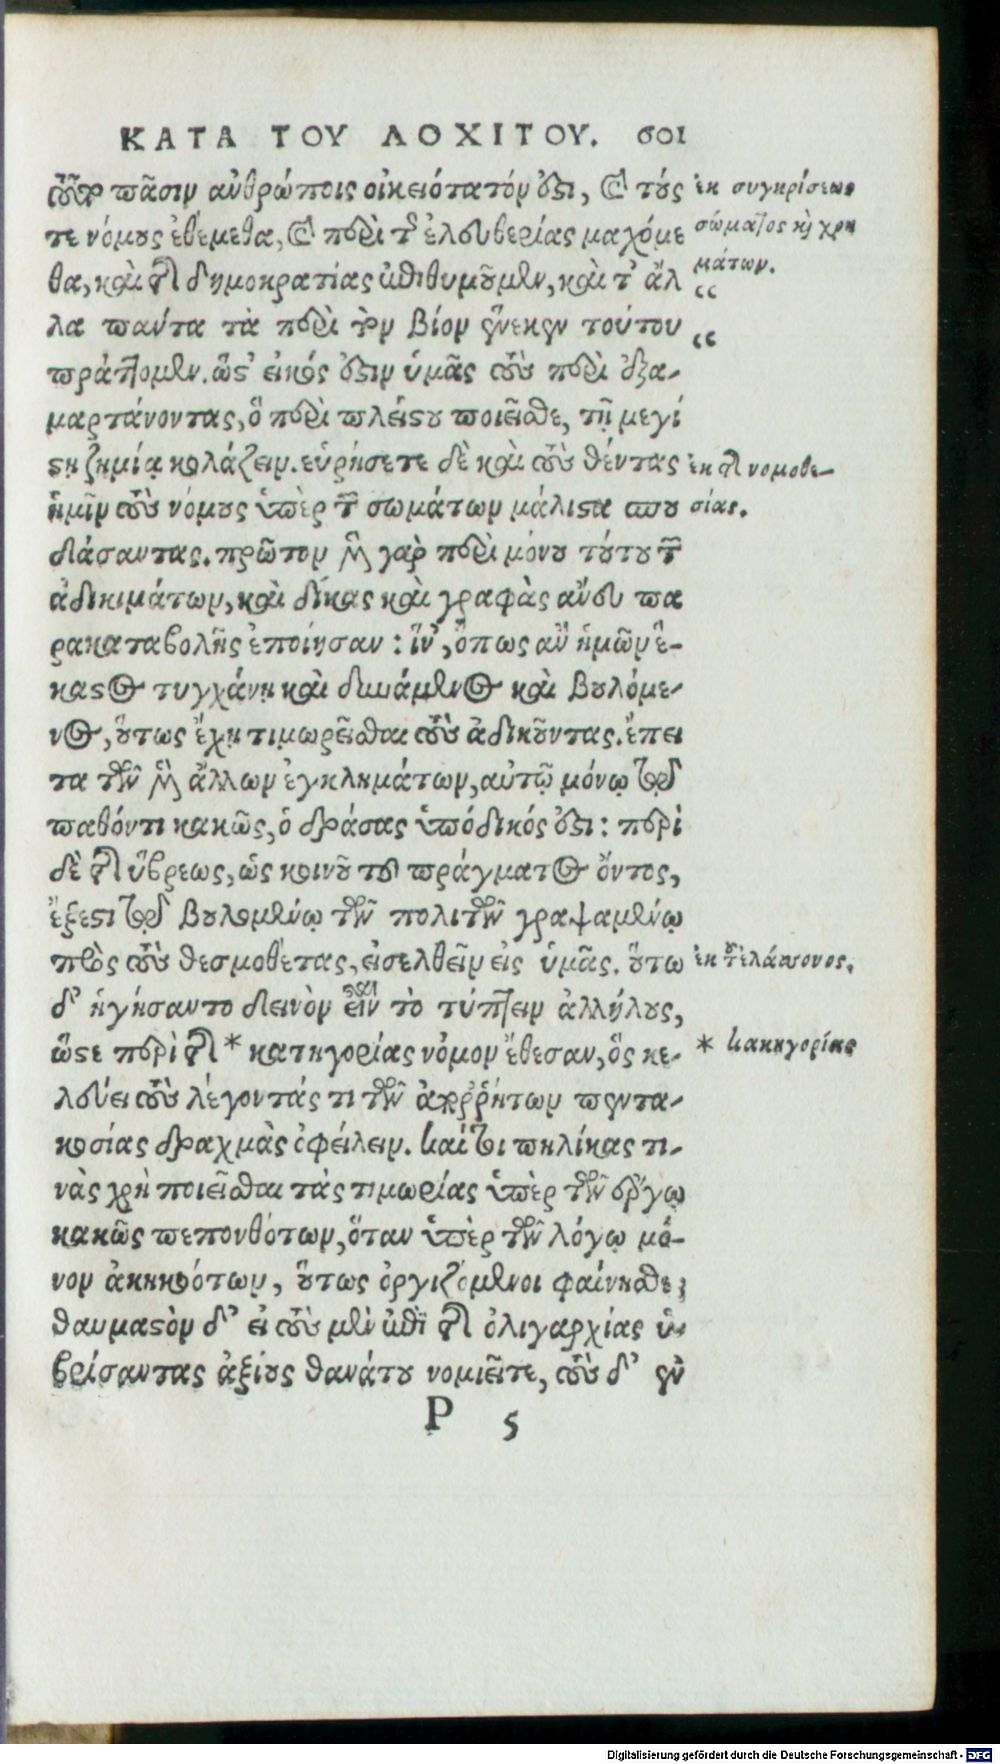 ΚΑΤΑ ΤΟΥ ΛΟΧΙΤΟΥ. 601
τοῦτο πᾶσιν ἀνθρώποις οἰκειότατόν ὅξι, καὶ τούς
τε νόμους ἐθέμεθα, καὶ περὶ τῆς ἐλευθερίας μαχόμε
θα, καὶ τῆς δημοκρατίας ἐπιθυμοῦμεν, καὶ τ' ἄλ
λα πάντα τὰ περὶ τὸν βίον ἕνεκεν τούτου
πράττομεν. ὥστ' εἰκός ἐστιν ὑμᾶς τοὺς περὶ ἐξα-
μαρτάνοντας, ὃ περὶ πλείστου ποιεῖσθε, τῇ μεγί
στῃ ζημίᾳ κολάζειν. εὑρήσετε δὲ καὶ τοὺς θέντας
ἡμῖν τοὺς νόμους ὑπὲρ τῶν σωμάτων μάλιστα σπου
δάσαντας. πρῶτον μὲν γὰρ περὶ μόνου τούτου τῶν
ἀδικιμάτων, καὶ δίκας καὶ γραφὰς ἄνευ πα
ρακαταβολῆς ἐποίησαν: ἵν', ὅπως ἂν ἡμῶν ἕ-
καστος τυγχάνῃ καὶ δυνάμενος καὶ βουλόμε-
νος, οὕτως ἔχῃ τιμωρεῖσθαι τοὺς ἀδικοῦντας. ἔπει
τα τῶν μὲν ἄλλων ἐγκλημάτων, αὐτῷ μόνῳ τῷ
παθόντι κακῶς, ὁ δράσας ὑπόδικός ἐστι: περὶ
δὲ τῆς ὕβρεως, ὡς κοινοῦ τοῦ πράγματος ὄντος,
ἔξεστι τῷ βουλομένῳ τῶν πολιτῶν γραψαμένῳ
πρὸς τοὺς θεσμοθέτας, εἰσελθεῖν εἰς ὑμᾶς. οὕτω
δ' ἡγήσαντο δεινὸν εἶναι τὸ τύπτειν ἀλλήλους,
ὥστε περὶ τῆς * κατηγορίας νόμον ἔθεσαν, ὃς κε-
λεύει τοὺς λέγοντάς τι τῶν ἀπορρήτων πεντα-
κοσίας δραχμὰς ὀφείλειν. καίτοι πηλίκας τι-
νὰς χρὴ ποιεῖσθαι τὰς τιμωρίας ὑπὲρ τῶν ἔργῳ
κακῶς πεπονθότων, ὅταν ὑπὲρ τῶν λόγῳ μό-
νον ἀκηκοότων, οὕτως ὀργιζόμενοι φαίνησθε;
θαυμαστὸν δ' εἰ τοὺς μὲν ἐπὶ τῆς ὀλιγαρχίας ὑ-
βρίσαντας ἀξίους θανάτου νομιεῖτε, τοὺς δ' ἐν
P 5
ἐκ συγκρίσεως
σώματος καὶ χρη
μάτων.
“
“
ἐκ τῆς νομοθε-
σίας.
ἐκ τοῦ ἐλάττονος.
* κακηγορίας
Digitalisierung gefördert durch die Deutsche Forschungsgemeinschaft - DFG